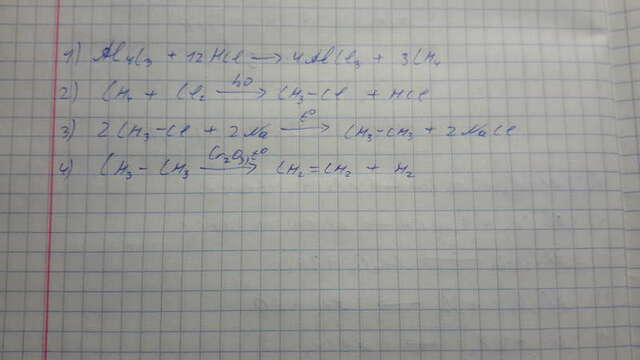 1) Al₄C₃ + 12HCl ⟶ 4AlCl₃ + 3CH₄
2) CH₄ + Cl₂ hν⟶ CH₃-Cl + HCl
3) 2CH₃-Cl + 2Na t°⟶ CH₃-CH₃ + 2NaCl
4) CH₃-CH₃ Cr₂O₃, t°⟶ CH₂=CH₂ + H₂